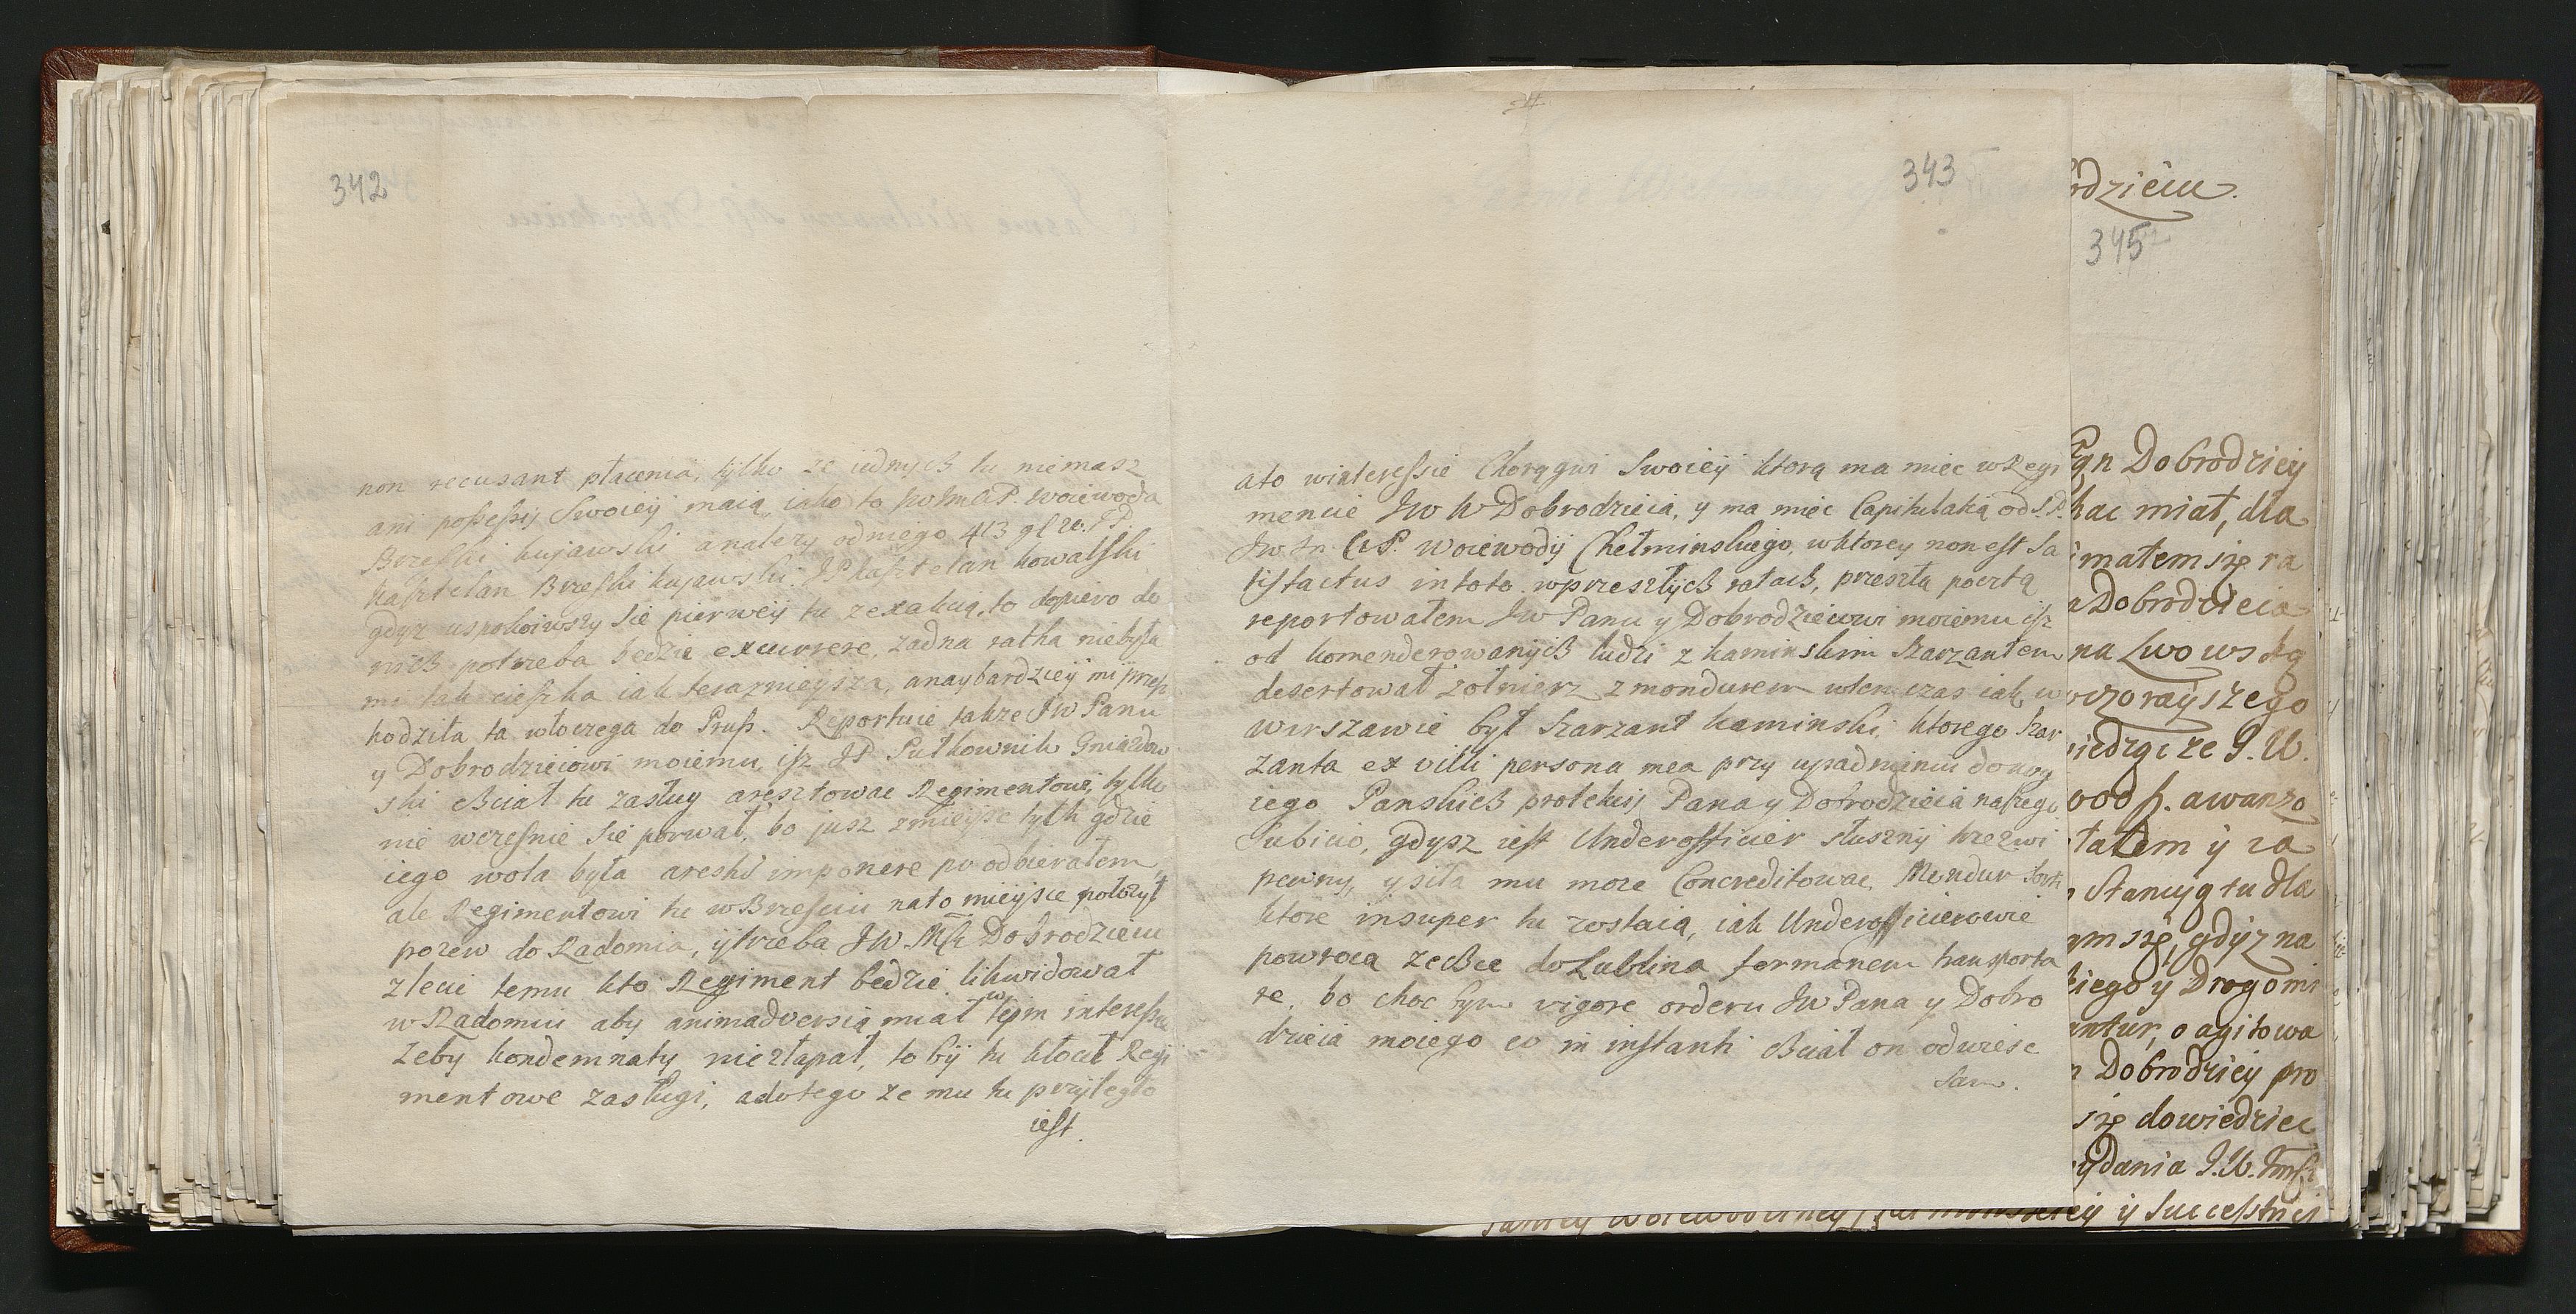 342
non recusant płacenia, tylko ze iednych tu niemasz
ani possessij Swoieij maią, iako to WoiewoDa
Brzeski kujawski a nalezy odniego 413 gl
kasztelan Brzeski kujawski. JP kasztelan kowalski
gdyz uspokoiwszy Sie pierweij tu zexakcią, to dopiero do
nich potrzeba bedzie excurrere, zadna ratka niebyła
mi tak cieszka iak terazniejsza, anaybardzieij mi przesz
kodziła ta włoczega do Prus. Reportuie takze Jw Panu
y Dobrodzieiowi moiemu, isz JP Pułkownik Gniazdow
ski chciał tu zasług aresztowac Regimentowi, tylko
nie wczesnie Sie porwał, bo jusz zmieijsc tych gdzie
iego wola była areshi imponere poodbierałem,
ale Regimentowi tu wBrzesciu nato mieijsce położył
pozew do Radomia, ijtrzeba JW Dobrodzieiu
zlecic temu kto Regiment będzie likwidował
w Radomiu aby animadversią miał w tym interessie
Zeby kondemnaty niezłapał, to bij tu kłocił Regi
mentowe zasługi, adotego ze mu tu przyległo
iest.
343
ato winteressie Chorągwi Swoieij ktorą ma miec wRegi
mencie Jw W Dobrodzieia, y ma miec Capitulatią od S.P.
Jw Woiewodij Chełminskiego, wktorey non est Sa
tisfactus in toto wprzeszłijch ratach, przeszłą pocztą
reportowałem Jw Panu y Dobrodzieiowi moiemu isz
od komenderowanijch ludzi z kaminskim Szarzantem
desertował zołnierz z mondurem wten czas iak w
wirszawie był Szarzant kaminski, ktorego Szar
zanta ex villi persona mea przy upadnieniu donog
iego Panskich protekcij Pana y Dobrodzieia naszego
Subicio, gdysz iest Underofficier słusznij trezwi
pewny, y siła mu moze Concreditowac. Mondur
ktore insuper tu zostaią, iak Underofficierowie
powrocą zechce do Lublina formanem transporta
re, bo choc bym vigore orderu Jw Pana y Dobro
dzieia moiego co in instanti chciał on odwiesc
Sam.
odzieiu.
345
Dobrodzieij
hac miał, dla
matem się ra
Dobrodzieia
na Lwowską
orayszego
iedzgi ze J.W.
awanzo
tałem ij za
Stancyą tu dla
ym się, gdyz na
iego y Drogomi
antur, o agitowa
Dobrodzieij pro
się dowiedziec
ydania J.W.
ij Successtnie